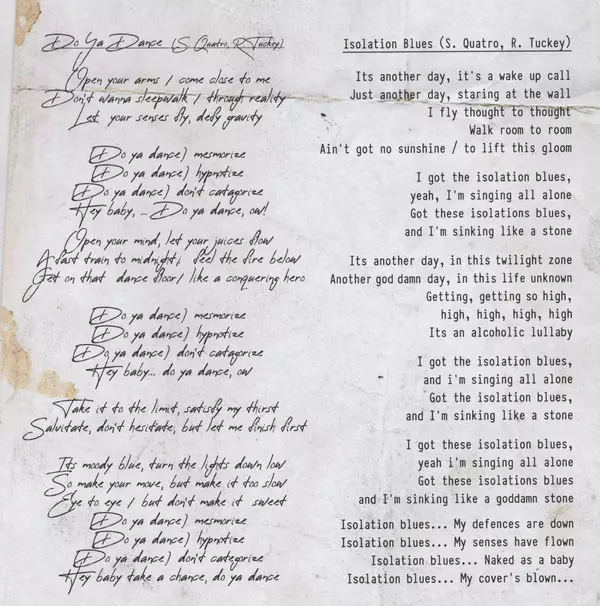 Do Ya Dance (S. Quatro, R. Tuckey)
Open your arms / come close to me
Don't wanna sleepwalk / through reality
Let your senses fly, defy gravity
(Do ya dance) mesmorize
(Do ya dance) hypnotize
(Do ya dance) don't catagorize
Hey baby, ... Do ya dance, ow!
Open your mind, let your juices flow
A fast train to midnight; feel the fire below
Get on that dance floor/ like a conquering hero
(Do ya dance) mesmorize
(Do ya dance) hypnotize
(Do ya dance) don't catagorize
Hey baby... do ya dance, ow
Take it to the limit, satisfy my thirst
Salvitate, don't hesitate, but let me finish first
Its moody blue, turn the lights down low
So make your move, but make it too slow
Eye to eye / but don't make it sweet
(Do ya dance) mesmorize
(Do ya dance) hypnotize
(Do ya dance) don't categorize
Hey baby take a chance, do ya dance
Isolation Blues (S. Quatro, R. Tuckey)
Its another day, it's a wake up call
Just another day, staring at the wall
I fly thought to thought
Walk room to room
Ain't got no sunshine / to lift this gloom
I got the isolation blues,
yeah, I'm singing all alone
Got these isolations blues,
and I'm sinking like a stone
Its another day, in this twilight zone
Another god damn day, in this life unknown
Getting, getting so high,
high, high, high, high
Its an alcoholic lullaby
I got the isolation blues,
and i'm singing all alone
Got the isolation blues,
and I'm sinking like a stone
I got these isolation blues,
yeah i'm singing all alone
Got these isolations blues
and I'm sinking like a goddamn stone
Isolation blues... My defences are down
Isolation blues... My senses have flown
Isolation blues... Naked as a baby
Isolation blues... My cover's blown...